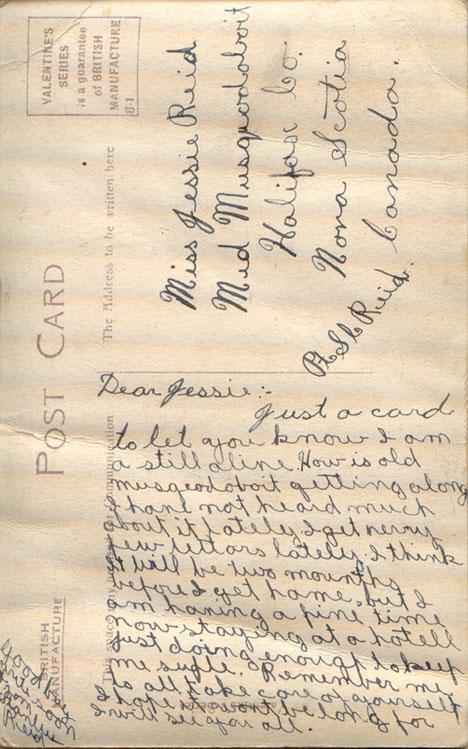 VALENTINE'S
SERIES
is a guarantee
of BRITISH
MANUFACTURE
S-1
POST CARD
The Address to be written here
BRITISH
MANUFACTURE
Miss Jessie Reid
Mid Musquodoboit
Halifax Co.
Nova Scotia
Canada.
Reid.
Dear Jessie:-
Just a card
to let you know I am
a still alive. How is old
musqeodoboit getting along
I have not heard much
about it lately I get verry
few lettars lately, I think
it will be two mounths
before I get home. but I
am having a fine time
now staying at a hotell
just doing enough to keep
me . Remember me
to all take care of yourself
hope it wont be long for
I will see you all.
Reid